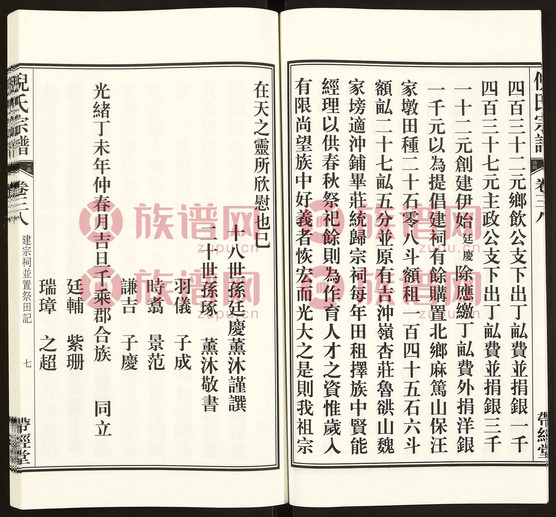 倪氏宗譜
卷三八
帶經堂
四百三十二元鄉飲公支下出丁畝費並捐銀一千
四百三十七元主政公支下出丁畝費並捐銀三千
一十二元創建伊始廷慶除應繳丁畝費外捐洋銀
一千元以為提倡建祠有餘購置北鄉麻篤山保汪
家墩田種二十石零八斗額租一百四十五石六斗
額畝二十七畝五分並原有吉沖嶺杏莊魯山魏
家塝適沖鋪畢莊統歸宗祠每年田租擇族中賢能
經理以供春秋祭祀餘則為作育人才之資惟歲入
有限尚望族中好義者恢宏而光大之是則我祖宗
在天之靈所欣慰也已
十八世孫廷慶薰沐謹譔
二十世孫琢 薰沐敬書
羽儀 子成
時翥 景范
謙吉 子慶
光緒丁未年仲春月吉旦千乘郡合族 同立
廷輔 紫珊
瑞璋 之超
倪氏宗譜
卷三八
建宗祠並置祭田記
七
帶經堂
族谱网
zupu.cn